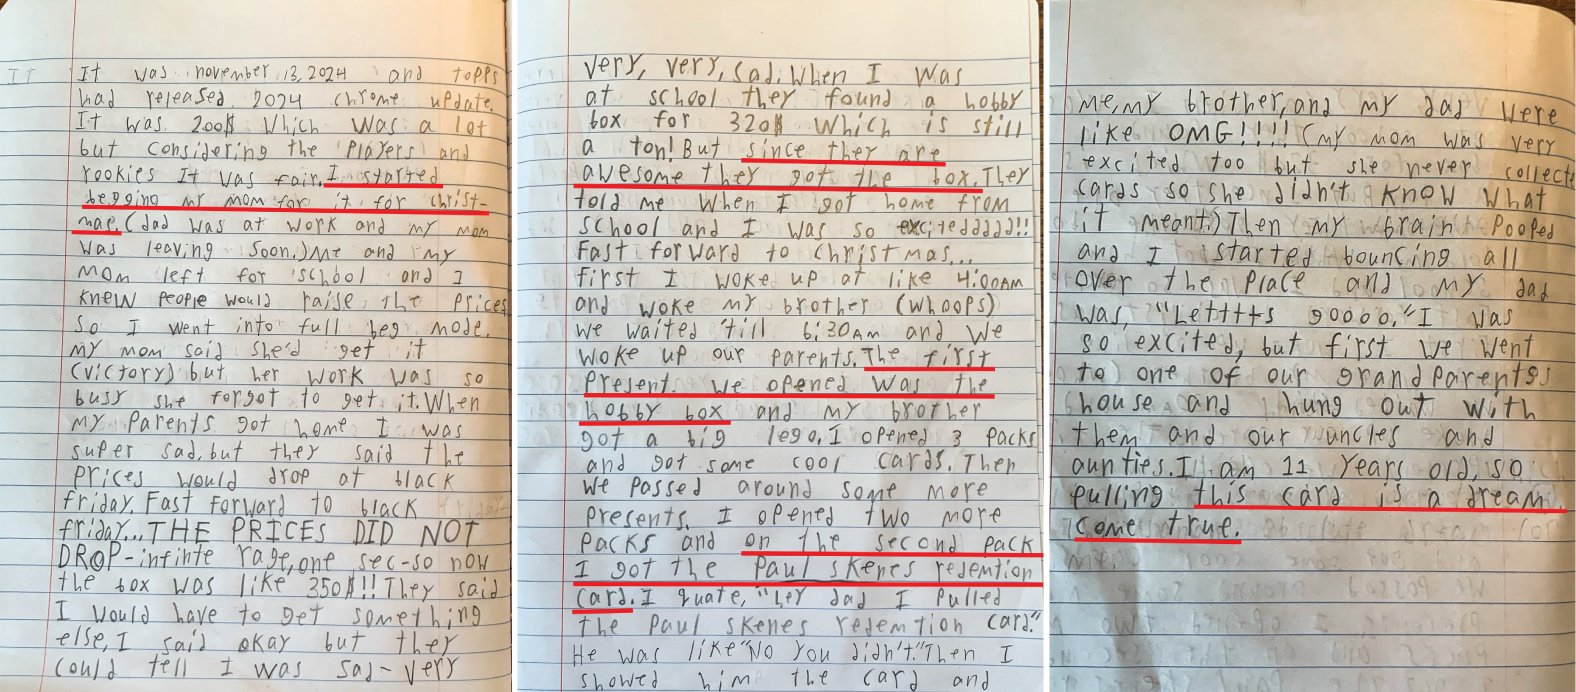 It It was november 13, 2024 and topps
had released 2024 chrome update.
It was 200$ which was a lot
but considering the players and
rookies It was fair. I started
begging my mom for it for christ-
mas. (dad was at work and my mom
was leaving soon.) Me and my
mom left for school and I
knew people would raise the prices
so I went into full beg mode.
my mom said she'd get it
(victory) but her work was so
busy she forgot to get it. When
my parents got home I was
super sad, but they said the
prices would drop at black
friday. Fast forward to black
friday... THE PRICES DID NOT
DROP-infinte rage, one sec-so now
the box was like 350$!! They said
I would have to get something
else, I said okay but they
could tell I was sad-very
very, very, sad. When I was
at school they found a hobby
box for 320$ which is still
a ton! But since they are
awesome they got the box. They
told me when I got home from
school and I was so exciteddddd!!
Fast forward to christmas...
first I woke up at like 4:00AM
and woke my brother (whoops)
we waited till 6:30AM and we
woke up our parents. The first
present we opened was the
hobby box and my brother
got a big lego. I opened 3 packs
and got some cool cards. Then
we passed around some more
presents. I opened two more
packs and on the second pack
I got the Paul skenes redemtion
card. I quate, "hey dad I pulled
the Paul skenes redemtion card."
He was like "No you didn't." Then I
showed him the card and
me, my brother, and my dad were
like OMG!!!! (my mom was very
excited too but she never collecte
cards so she didn't know what
it meant.) Then my brain pooped
and I started bouncing all
over the place and my dad
was, "Letttts goooo." I was
so excited, but first we went
to one of our grandparents
house and hung out with
them and our uncles and
aunties. I am 11 years old, so
pulling this card is a dream
come true.